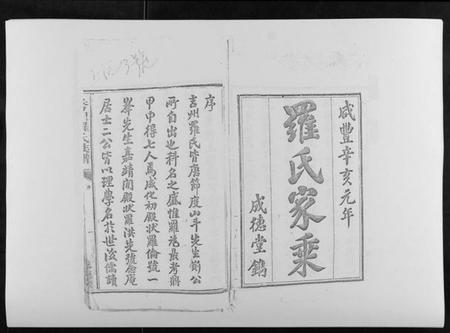 咸豐辛亥元年
羅氏家乘
成德堂鐫
序
吉州羅氏皆唐節度山斗先生
所自出也科名之盛惟羅為最考
甲申得七人焉成化初殿狀羅倫號一
峯先生嘉靖間殿狀羅洪先號念庵
居士二公皆以理學名於世後儒讀